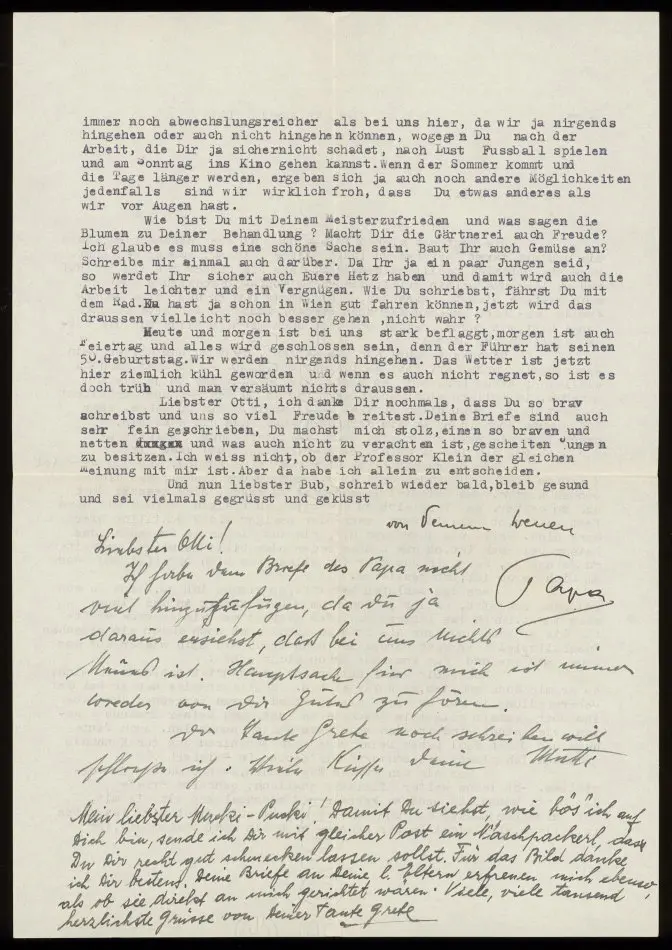 immer noch abwechslungsreicher als bei uns hier, da wir ja nirgends
hingehen oder auch nicht hingehen können, wogegen Du nach der
Arbeit, die Dir ja sichernicht schadet, nach Lust Fussball spielen
und am Sonntag ins Kino gehen kannst.Wenn der Sommer kommt und
die Tage länger werden, ergeben sich ja auch noch andere Möglichkeiten
jedenfalls sind wir wirklich froh, dass Du etwas anderes als
wir vor Augen hast.
Wie bist Du mit Deinem Meisterzufrieden und was sagen die
Blumen zu Deiner Behandlung ? Macht Dir die Gärtnerei auch Freude?
Ich glaube es muss eine schöne Sache sein. Baut Ihr auch Gemüse an?
Schreibe mir einmal auch darüber. Da Ihr ja ein paar Jungen seid,
so werdet Ihr sicher auch Euere Hetz haben und damit wird auch die
Arbeit leichter und ein Vergnügen. Wie Du schriebst, fährst Du mit
dem Rad.Du hast ja schon in Wien gut fahren können,jetzt wird das
draussen vielleicht noch besser gehen ,nicht wahr ?
Heute und morgen ist bei uns stark beflaggt,morgen ist auch
Feiertag und alles wird geschlossen sein, denn der Führer hat seinen
50.Geburtstag.Wir werden nirgends hingehen. Das Wetter ist jetzt
hier ziemlich kühl geworden und wenn es auch nicht regnet,so ist es
doch trüb und man versäumt nichts draussen.
Liebster Otti, ich danke Dir nochmals, dass Du so brav
schreibst und uns so viel Freude b reitest.Deine Briefe sind auch
sehr fein geschrieben, Du machst mich stolz,einen so braven und
netten und was auch nicht zu verachten ist,gescheiten Jungen
zu besitzen.Ich weiss nicht,ob der Professor Klein der gleichen
Meinung mit mir ist.Aber da habe ich allein zu entscheiden.
Und nun liebster Bub, schreib wieder bald,bleib gesund
und sei vielmals gegrüsst und geküsst
von Deinem treuen
Papa
Liebster Otti!
Ich habe dem Briefe des Papa nicht
viel hinzuzufügen, da Du ja
daraus ersiehst, daß bei uns nichts
Neues ist. Hauptsache für mich ist immer
wieder von Dir Gutes zu hören.
Da Tante Grete noch schreiben will
schließe ich. Viele Küsse Deine Mutti
Mein liebster Mucki-Pucki! Damit Du siehst, wie bös' ich auf
Dich bin, sende ich Dir mit gleicher Post ein Naschpackerl, dass
Du Dir recht gut schmecken lassen sollst. Für das Bild danke
ich Dir bestens. Deine Briefe an Deine l. Eltern erfreuen mich ebenso,
als ob sie direkt an mich gerichtet wären. Viele, viele tausend
herzlichste Grüsse von Deiner Tante Grete